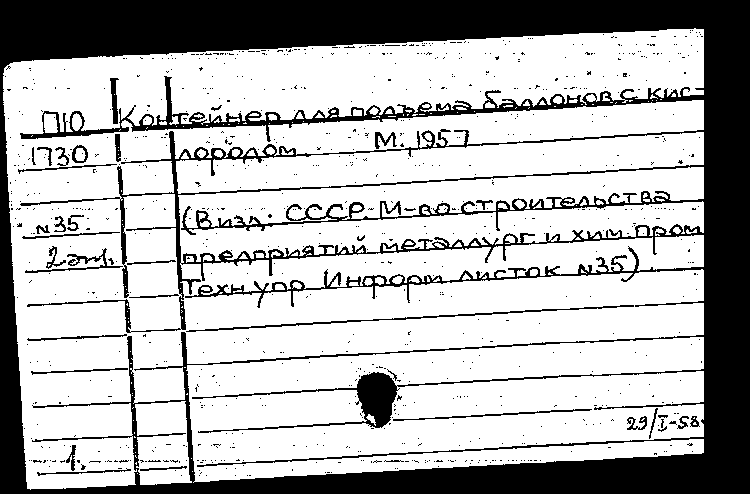 П10 Контейнер для подъема баллонов с кис-
1730 лородом. М., 1957
N35. (В изд: СССР. М-во строительства
2 эт. предприятий металлург. и хим. пром
Техн. упр Информ. листок N35).
29/I-58.
1.